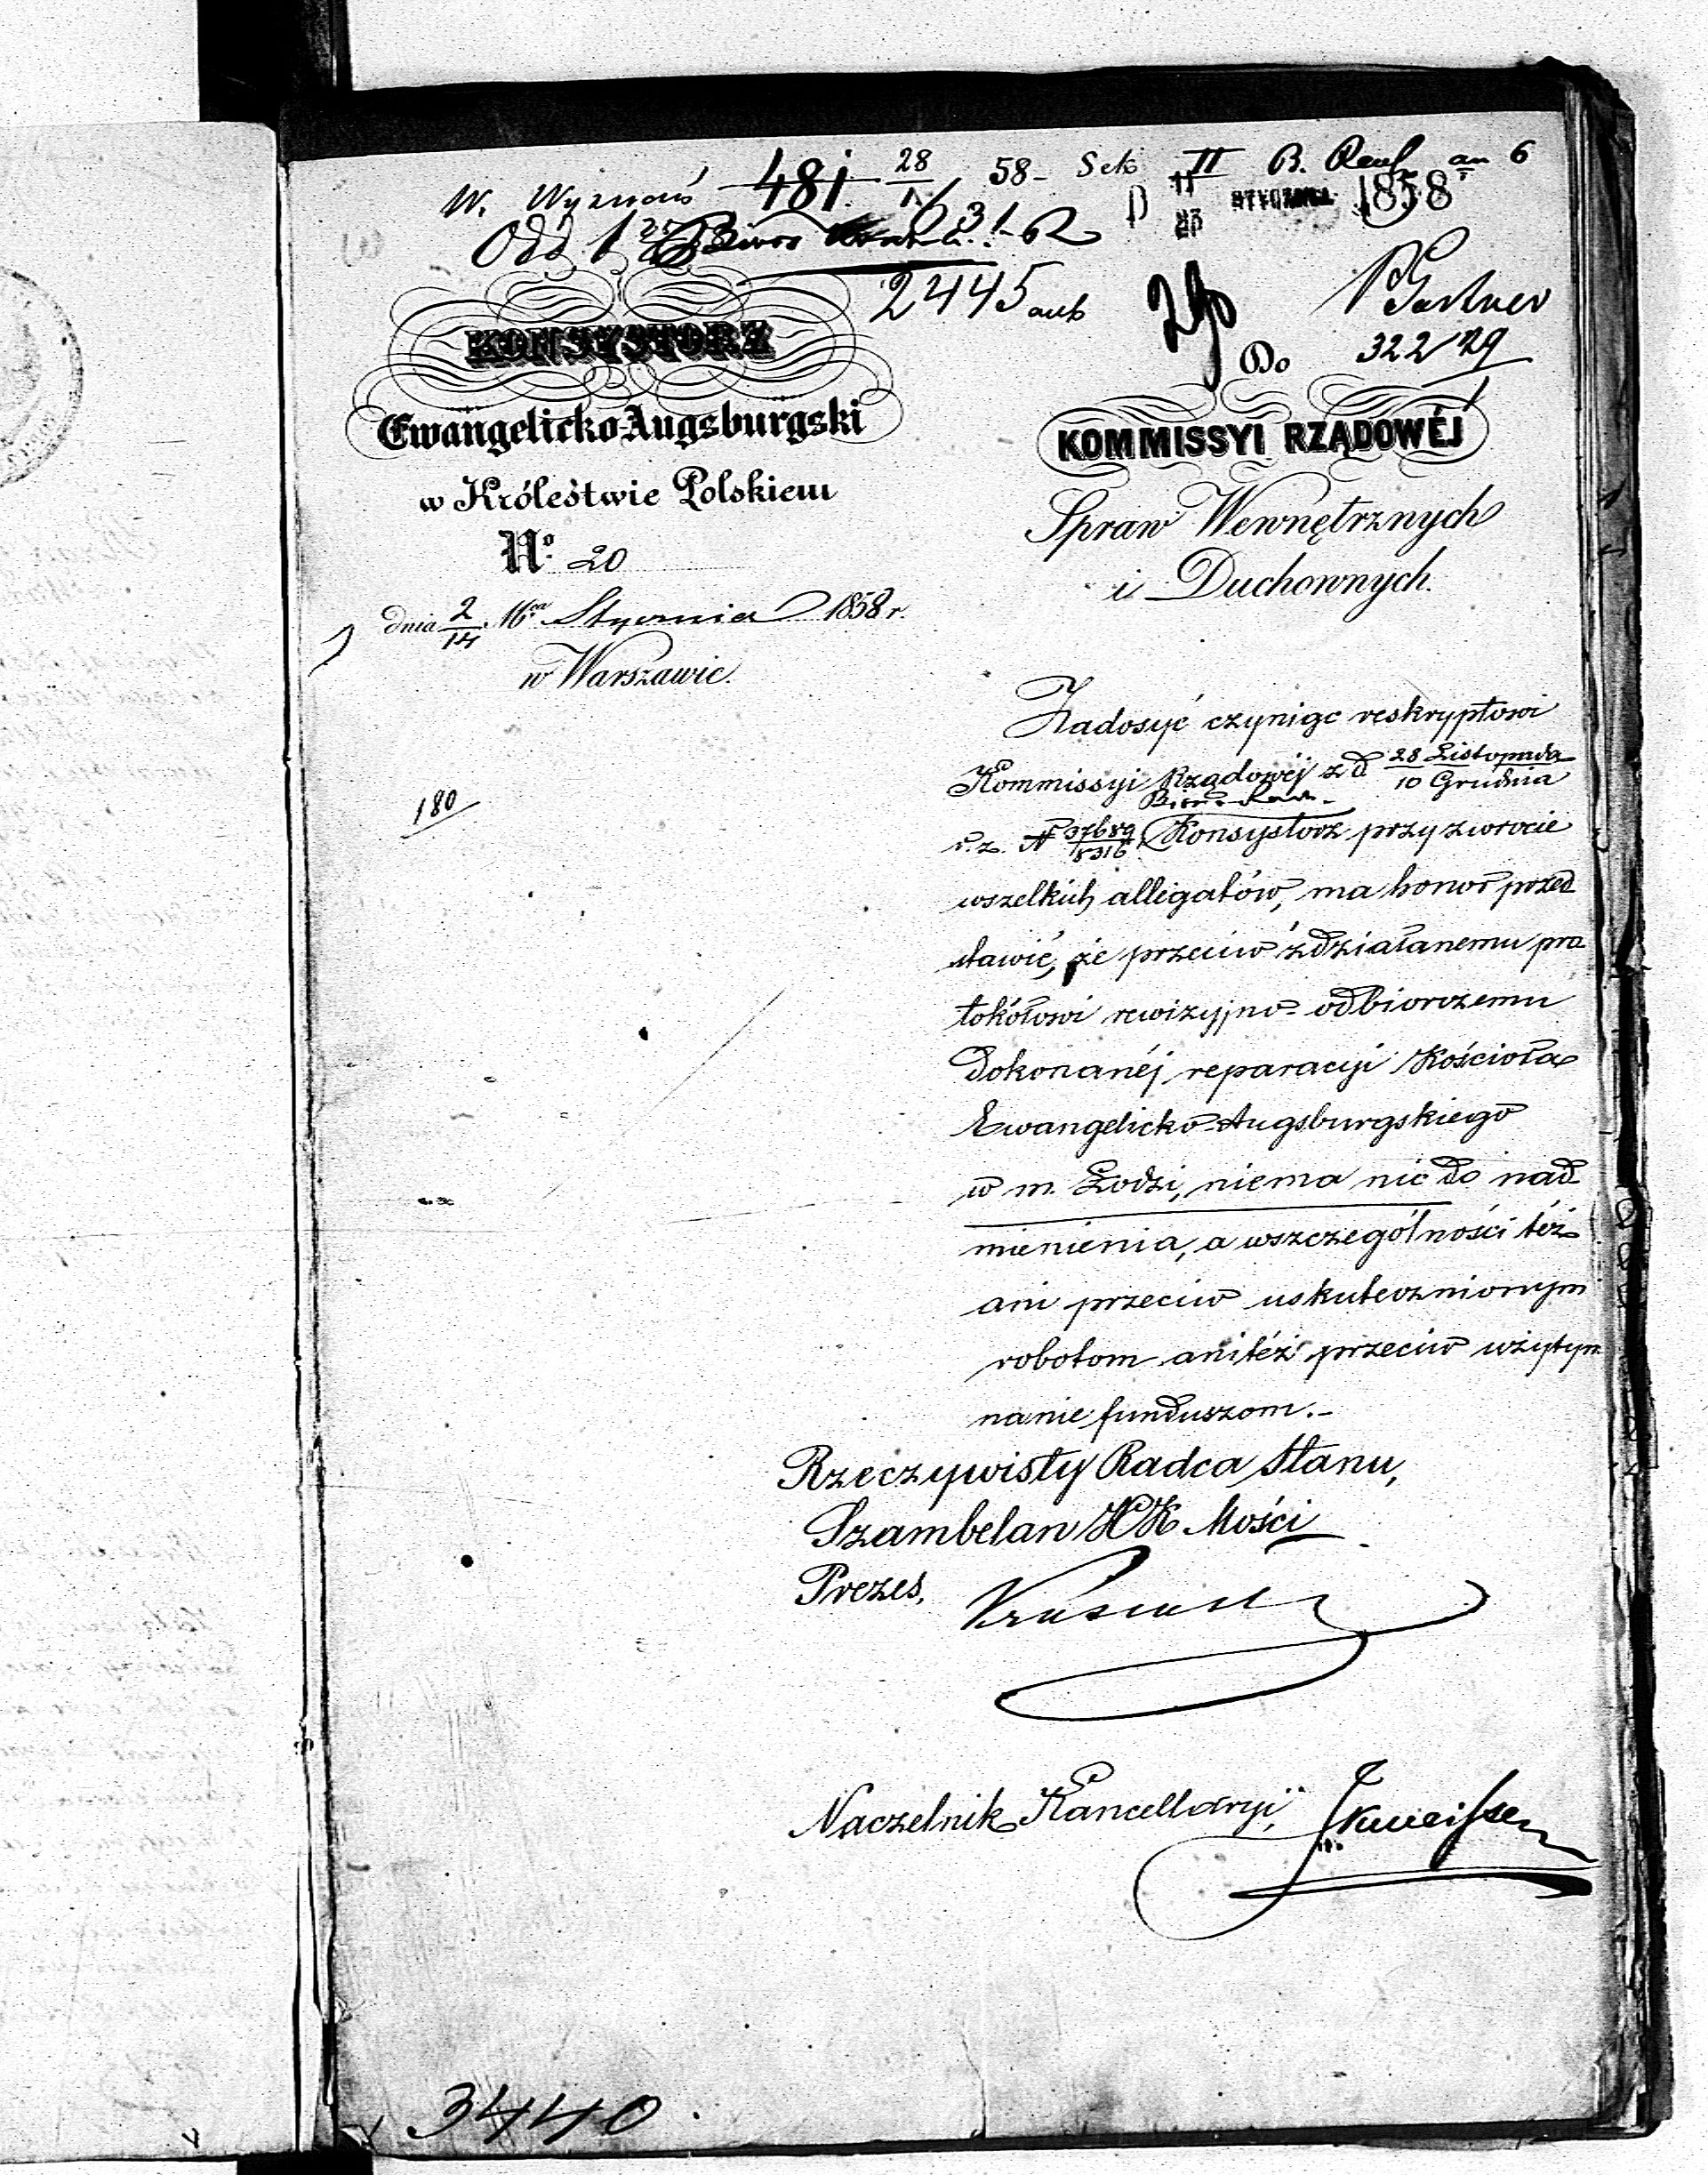 W. Wyznań 481 28/1 58 - Sek II B. Rauf an 6
Odd 1
D 11/23 STYCZNIA 1858
2445
Do
322/29
KONSYSTORZ
Ewangelicko-Augsburgski
w Królestwie Polskiem
No. 20
dnia 2/14 Mca Stycznia 1858 r.
w Warszawie.
KOMMISSYI RZĄDOWÉJ
Spraw Wewnętrznych
i Duchownych.
180
Zadosyć czyniąc reskryptowi
Kommissyi Rządowéj z d 28 Listopada/10 Grudnia
r. z. N 37689/8316 Konsystorz przy zwrocie
wszelkich allegatów, ma honor przed
stawić, że przeciw zdziałanemu pro
tokółowi rewizyjno-odbiorczemu
dokonanéj reparacyi Kościoła
Ewangelicko-Augsburgskiego
w m. Łodzi, niema nic do nad
mienienia, a wszczególności też
ani przeciw uskutecznionym
robotom anitéż przeciw użytym
nanie funduszom.-
Rzeczywisty Radca Stanu,
Szambelan JCK Mości
Prezes,
Naczelnik Kancellaryi,
3440